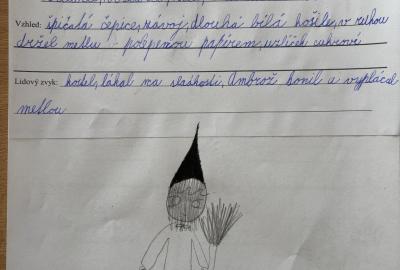 Vzhled: špičatá čepice, závoj, dlouhá bílá košile, v rukou
držel metlu polepenou papírem, uzlíček cukroví
Lidový zvyk: kostel, lákal na sladkosti, Ambrož honil a vyplácel
metlou